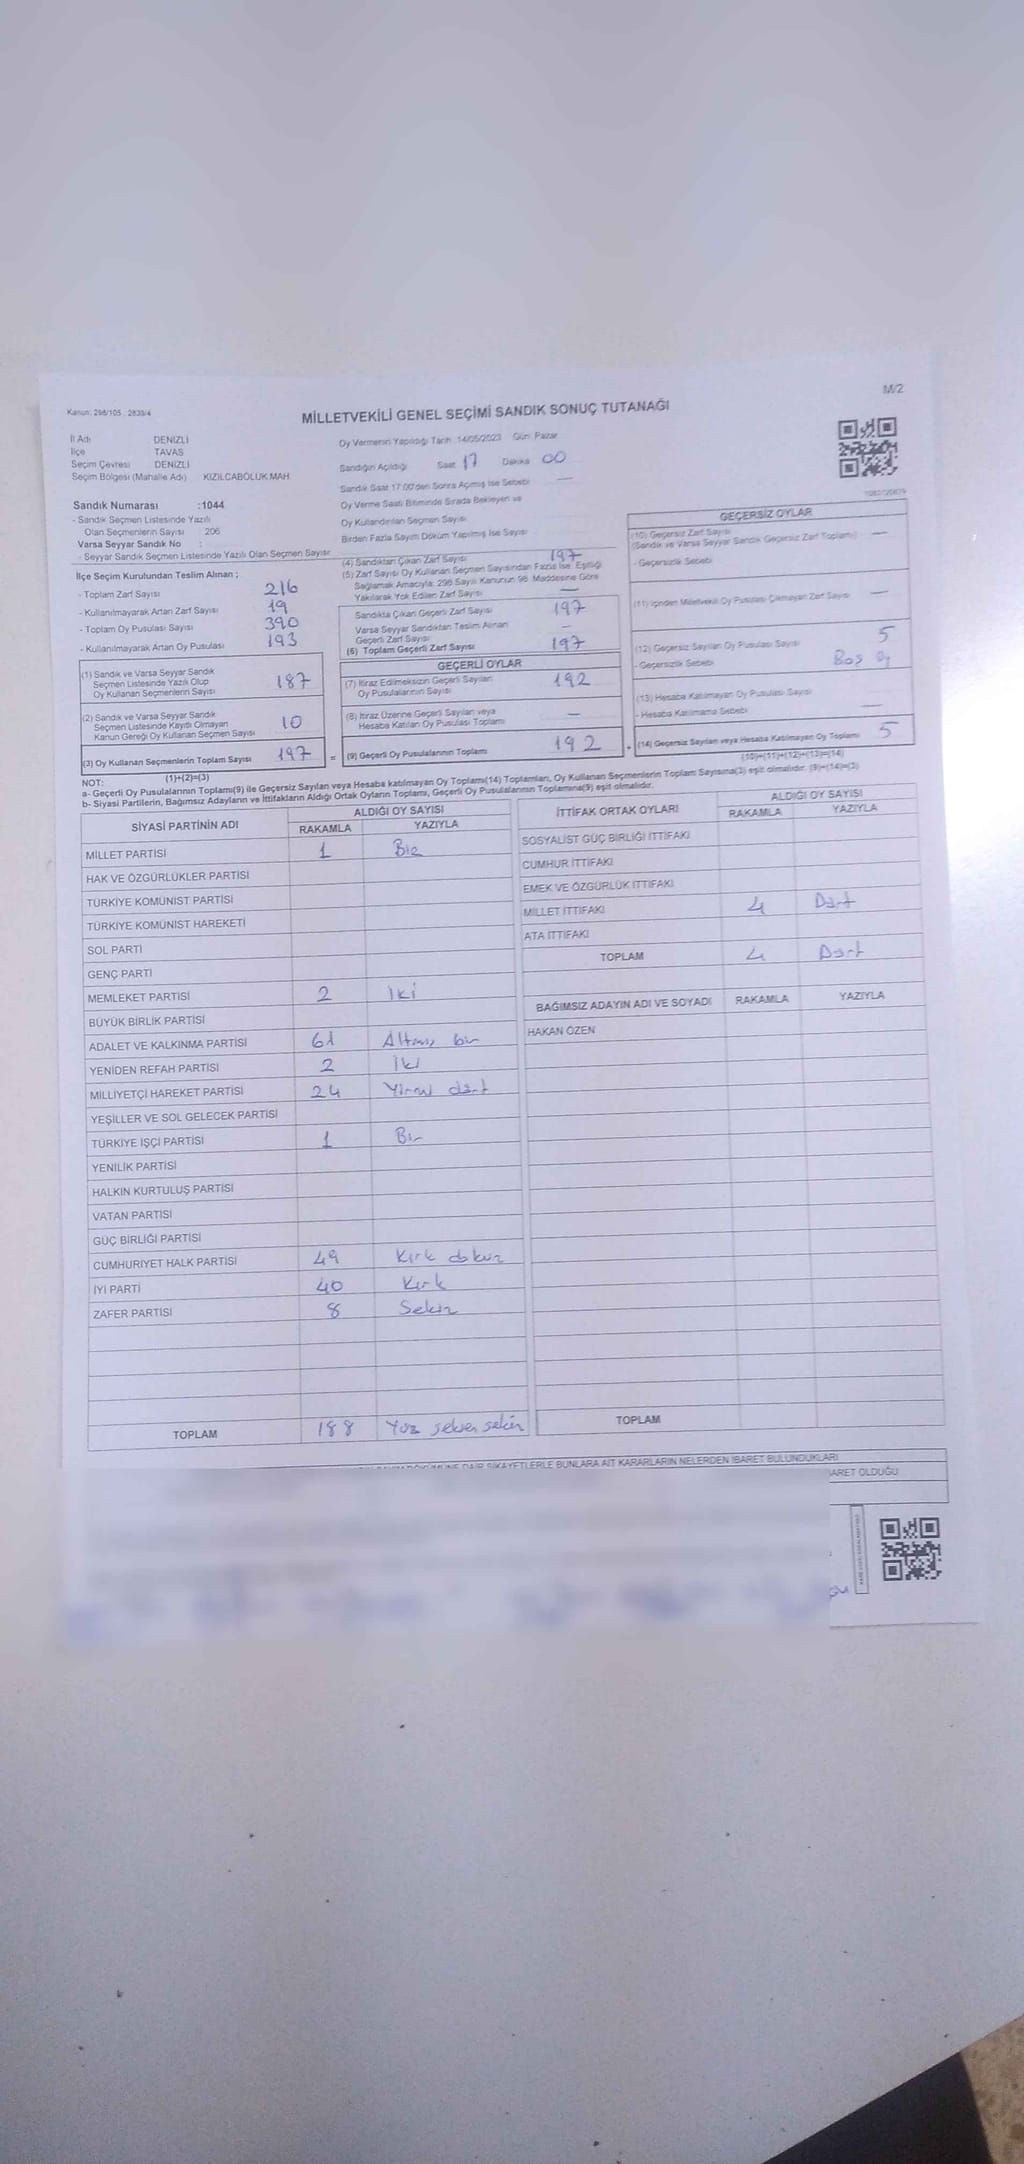 M/2
Kanun: 298/105 , 2839/4
MİLLETVEKİLİ GENEL SEÇİMİ SANDIK SONUÇ TUTANAĞI
İl Adı DENİZLİ
İlçe TAVAS
Seçim Çevresi DENİZLİ
Seçim Bölgesi (Mahalle Adı) KIZILCABÖLÜK MAH.
Oy Vermenin Yapıldığı Tarih 14/05/2023 Gün: Pazar
Sandığın Açıldığı Saat 17 Dakika 00
Sandık Saat 17:00'den Sonra Açılmış İse Sebebi —
Oy Verme Saati Bitiminde Sırada Bekleyen ve
Oy Kullandırılan Seçmen Sayısı
Birden Fazla Sayım Döküm Yapılmış İse Sayısı
Sandık Numarası :1044
- Sandık Seçmen Listesinde Yazılı
Olan Seçmenlerin Sayısı 206
Varsa Seyyar Sandık No :
- Seyyar Sandık Seçmen Listesinde Yazılı Olan Seçmen Sayısı
İlçe Seçim Kurulundan Teslim Alınan ;
- Toplam Zarf Sayısı 216
- Kullanılmayarak Artan Zarf Sayısı 19
- Toplam Oy Pusulası Sayısı 390
- Kullanılmayarak Artan Oy Pusulası 193
(1) Sandık ve Varsa Seyyar Sandık
Seçmen Listesinde Yazılı Olup
Oy Kullanan Seçmenlerin Sayısı 187
(2) Sandık ve Varsa Seyyar Sandık
Seçmen Listesinde Kayıtlı Olmayan
Kanun Gereği Oy Kullanan Seçmen Sayısı 10
(3) Oy Kullanan Seçmenlerin Toplam Sayısı 197
(1)+(2)=(3)
(4) Sandıktan Çıkan Zarf Sayısı 197
(5) Zarf Sayısı Oy Kullanan Seçmen Sayısından Fazla İse, Eşitliği
Sağlamak Amacıyla; 298 Sayılı Kanunun 98. Maddesine Göre
Yakılarak Yok Edilen Zarf Sayısı —
Sandıkta Çıkan Geçerli Zarf Sayısı 197
Varsa Seyyar Sandıktan Teslim Alınan
Geçerli Zarf Sayısı —
(6) Toplam Geçerli Zarf Sayısı 197
GEÇERLİ OYLAR
(7) İtiraz Edilmeksizin Geçerli Sayılan
Oy Pusulalarının Sayısı 192
(8) İtiraz Üzerine Geçerli Sayılan veya
Hesaba Katılan Oy Pusulası Toplamı —
= (9) Geçerli Oy Pusulalarının Toplamı 192
GEÇERSİZ OYLAR
(10) Geçersiz Zarf Sayısı
(Sandık ve Varsa Seyyar Sandık Geçersiz Zarf Toplamı) —
- Geçersizlik Sebebi
(11) İçinden Milletvekili Oy Pusulası Çıkmayan Zarf Sayısı —
(12) Geçersiz Sayılan Oy Pusulası Sayısı 5
- Geçersizlik Sebebi Boş oy
(13) Hesaba Katılmayan Oy Pusulası Sayısı
- Hesaba Katılmama Sebebi —
+ (14) Geçersiz Sayılan veya Hesaba Katılmayan Oy Toplamı 5
(10)+(11)+(12)+(13)=(14)
NOT:
a- Geçerli Oy Pusulalarının Toplamı(9) ile Geçersiz Sayılan veya Hesaba katılmayan Oy Toplamı(14) Toplamları, Oy Kullanan Seçmenlerin Toplam Sayısına(3) eşit olmalıdır. (9)+(14)=(3)
b- Siyasi Partilerin, Bağımsız Adayların ve İttifakların Aldığı Ortak Oyların Toplamı, Geçerli Oy Pusulalarının Toplamına(9) eşit olmalıdır.
SİYASİ PARTİNİN ADI ALDIĞI OY SAYISI
RAKAMLA YAZIYLA
MİLLET PARTİSİ 1 Bir
HAK VE ÖZGÜRLÜKLER PARTİSİ
TÜRKİYE KOMÜNİST PARTİSİ
TÜRKİYE KOMÜNİST HAREKETİ
SOL PARTİ
GENÇ PARTİ
MEMLEKET PARTİSİ 2 İki
BÜYÜK BİRLİK PARTİSİ
ADALET VE KALKINMA PARTİSİ 61 Altmış bir
YENİDEN REFAH PARTİSİ 2 İki
MİLLİYETÇİ HAREKET PARTİSİ 24 Yirmi dört
YEŞİLLER VE SOL GELECEK PARTİSİ
TÜRKİYE İŞÇİ PARTİSİ 1 Bir
YENİLİK PARTİSİ
HALKIN KURTULUŞ PARTİSİ
VATAN PARTİSİ
GÜÇ BİRLİĞİ PARTİSİ
CUMHURİYET HALK PARTİSİ 49 Kırk dokuz
İYİ PARTİ 40 Kırk
ZAFER PARTİSİ 8 Sekiz
TOPLAM 188 Yüz seksen sekiz
İTTİFAK ORTAK OYLARI ALDIĞI OY SAYISI
RAKAMLA YAZIYLA
SOSYALİST GÜÇ BİRLİĞİ İTTİFAKI
CUMHUR İTTİFAKI
EMEK VE ÖZGÜRLÜK İTTİFAKI
MİLLET İTTİFAKI 4 Dört
ATA İTTİFAKI
TOPLAM 4 Dört
BAĞIMSIZ ADAYIN ADI VE SOYADI RAKAMLA YAZIYLA
HAKAN ÖZEN
TOPLAM
DAİR ŞİKAYETLERLE BUNLARA AİT KARARLARIN NELERDEN İBARET BULUNDUKLARI
OLDUĞU